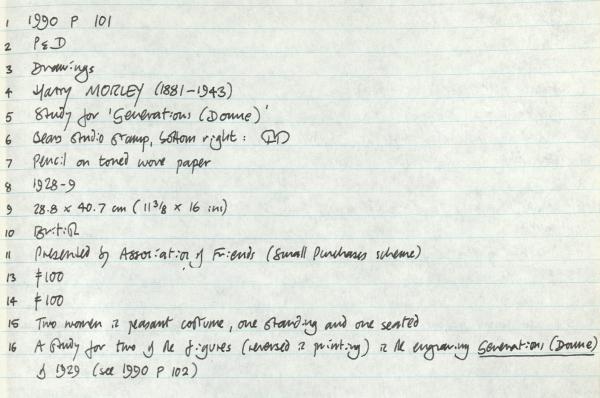 1 1990 P 101
2 P&D
3 Drawings
4 Harry MORLEY (1881-1943)
5 Study for 'Generations (Donne)'
6 Bears studio stamp, bottom right:
7 Pencil on toned wove paper
8 1928-9
9 28.8 x 40.7 cm (11 3/8 x 16 ins)
10 British
11 Presented by Association of Friends (Small Purchases scheme)
13 £100
14 £100
15 Two women in peasant costume, one standing and one seated
16 A study for two of the figures (reversed in printing) in the engraving Generations (Donne)
of 1929 (see 1990 P 102)